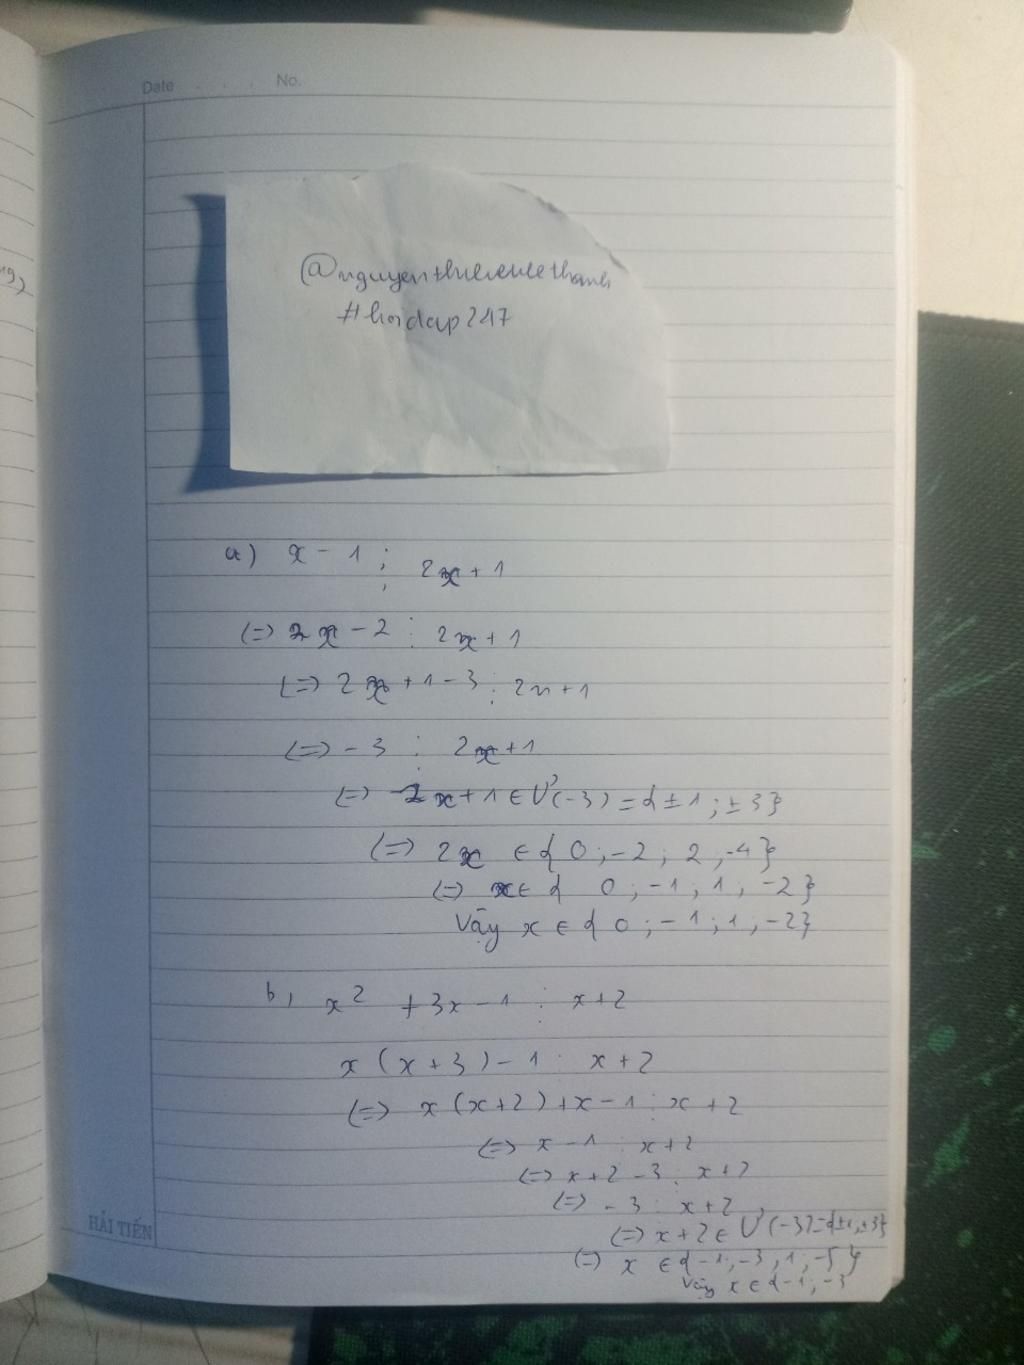 Date . . . . No.
19)
@nguyenthuc
#hoidap247
a) x - 1 ⋮ 2x + 1
(=) 2x - 2 ⋮ 2x + 1
(=) 2x + 1 - 3 ⋮ 2x + 1
(=) - 3 ⋮ 2x + 1
(=) 2x + 1 ∈ Ư(-3) = { ± 1 ; ± 3 }
(=) 2x ∈ { 0 ; -2 ; 2 ; -4 }
(=) x ∈ { 0 ; -1 ; 1 ; -2 }
Vậy x ∈ { 0 ; -1 ; 1 ; -2 }
b, x² + 3x - 1 ⋮ x + 2
x (x + 3) - 1 ⋮ x + 2
(=) x (x + 2) + x - 1 ⋮ x + 2
(=) x - 1 ⋮ x + 2
(=) x + 2 - 3 ⋮ x + 2
(=) - 3 ⋮ x + 2
(=) x + 2 ∈ Ư(-3) = { ±1, ±3 }
(=) x ∈ { -1 ; -3 ; 1 ; -5 }
Vậy x ∈ { -1 ; -3
HẢI TIẾN